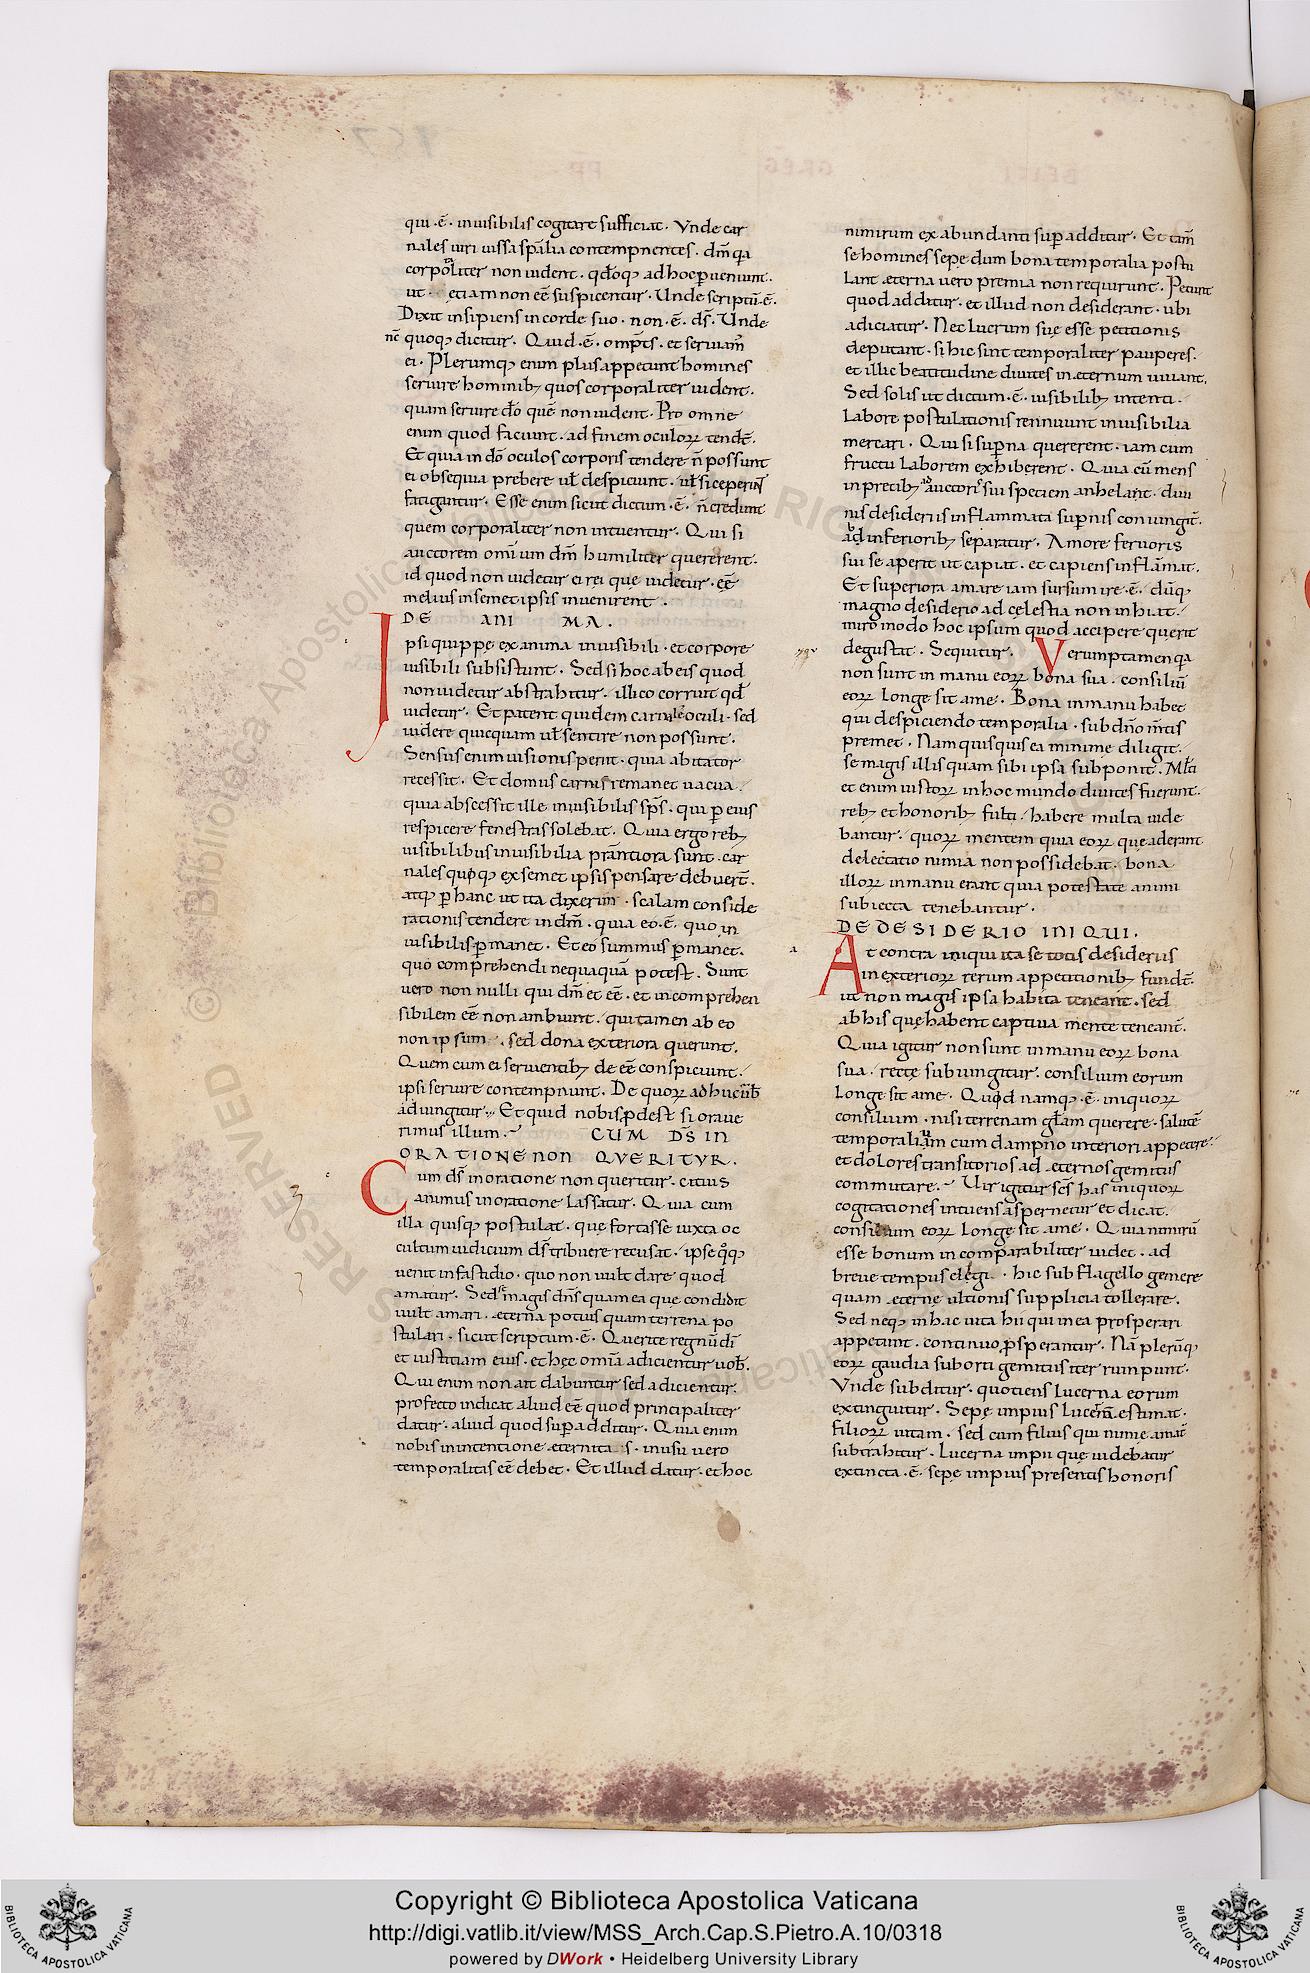 qui .ē. inuisibilis cogitare sufficiat. Vnde car
nales uiri uissa spālia contempnentes. dm̄ qa
corporaliter non uident. qdoq; ad hoc ꝑueniunt.
ut etiam non eē suspicentur. Unde scriptū .ē.
Dixit insipiens in corde suo. non .ē. ds̄. Unde
nc̄ quoq; dicitur. Quid .ē. omp̄ts. et seruiam̄
ei. Plerumq; enim plus appetunt homines
seruire hominib; quos corporaliter uident.
quam seruire dō quē non uident. Pro omne
enim quod faciunt. ad finem oculoꝝ tendt̄.
Et quia in dō oculos corporis tendere n̄ possunt
ei obsequia prebere ul̄ despiciunt. ul̄ si ceperint
fatigantur. Esse enim sicut dictum .ē. n̄ credunt
quem corporaliter non intuentur. Qui si
auctorem omīum dm̄ humiliter quererent.
id quod non uidetur ei rei que uidetur. eē
melius in semet ipsis inuenirent.
DE ANI MA.
Ipsi quippe ex anima inuisibili. et corpore
uisibili subsistunt. Sed si hoc ab eis quod
non uidetur abstrahitur. illico corruit qd̄
uidetur. Et patent quidem carnales oculi. sed
uidere quicquam ul̄ sentire non possunt.
Sensus enim uisionis perit. quia abitator
recessit. Et domus carnis remanet uacua.
quia abscessit ille inuisibilis sp̄s. qui ꝑ eius
respicere fenestras solebat. Quia ergo reb;
uisibilibus inuisibilia prāntiora sunt. car
nales quoq; ex semet ipsis pensare debuert̄.
atq; ꝑ hanc ut ita dixerim. scalam conside
rationis tendere in dm̄. quia eo .ē. quo in
uisibilis ꝑmanet. Et eo summus ꝑmanet.
quo comprehendi nequaquā potest. Sunt
uero non nulli qui dm̄ et eē. et incomprehen
sibilem eē non ambiunt. qui tamen ab eo
non ipsum. sed dona exteriora querunt.
Quem cum ei seruientib; de eē conspiciunt.
ipsi seruire contempnunt. De quoꝝ adhuc uīb
adiungitur. Et quid nobis ꝓdest si oraue
rimus illum. CUM DS̄ IN
ORATIONE NON QVERITVR.
Cum ds̄ in oratione non queritur. citius
animus in oratione lassatur. Quia cum
illa quisq; postulat. que fortasse iuxta oc
cultum iudicium ds̄ tribuere recusat. ipse qoq;
uenit in fastidio. quo non uult dare quod
amatur. Sed magis dn̄s quam ea que condidit
uult amari. aeterna potius quam terrena po
stulari. sicut scriptum .ē. Querite regnū dī
et iustitiam eius. et hęc omīa adicientur uob̄.
Qui enim non ait dabuntur sed adicientur.
profecto indicat aliud eē quod principaliter
datur. aliud quod suꝑ additur. Quia enim
nobis in intentione aeternitas. in usu uero
temporalitas eē debet. Et illud datur. et hoc
nimirum ex abundanti suꝑ additur. Et tam̄
se homines sepe dum bona temporalia postu
lant aeterna uero premia non requirunt. Petunt
quod additur. et illud non desiderant. ubi
adiciatur. Nec lucrum suę esse petitionis
deputant. si hic sint temporaliter pauperes.
et illic beatitudine diuites in aeternum uiuant.
Sed solis ut dictum .ē. uisibilib; intenti.
labore postulationis rennuunt inuisibilia
mercari. Qui si suꝑna quererent. iam cum
fructu laborem exhiberent. Quia cū mens
in precib; auctoris sui speciem anhelant. diui
nis desideriis inflammata suꝑnis coniungit̄.
ab inferiorib; separatur. Amore feruoris
sui se aperit ut capiat. et capiens inflāmat.
Et superiora amare iam sursum ire .ē. dūq;
magno desiderio ad cęlestia non inhiat.
miro modo hoc ipsum quod accipere querit
degustat. Sequitur. Verumptamen qa
non sunt in manu eoꝝ bona sua. consiliū
eoꝝ longe sit a me. Bona in manu habet
qui despiciendo temporalia. sub dn̄o m̄tis
premet. Nam quisquis ea minime diligit.
se magis illis quam sibi ipsa subponit. Ml̄ti
et enim iustoꝝ in hoc mundo diuites fuerunt.
reb; et honorib; fulti. habere multa uide
bantur. quoꝝ mentem quia eoꝝ que aderant
delectatio nimia non possidebat. bona
illoꝝ in manu erant quia potestate animi
subiecta tenebantur.
DE DESIDERIO INIQUI.
At contra iniqui ita se totis desideriis
in exterioꝝ rerum appetitionib; fundt̄.
ut non magis ipsa habita teneant. sed
ab his quę habent captiua mente teneant̄.
Quia igitur non sunt in manu eoꝝ bona
sua. recte subiungitur. consilium eorum
longe sit a me. Quod namq; .ē. iniquoꝝ
consilium. nisi terrenam gl̄am querere. salutē
temporalium cum dampno interiori appetere.
et dolores transitorios ad aeternos gemitus
commutare. Uir igitur scs̄ has iniquoꝝ
cogitationes intuens aspernetur et dicat.
consilium eoꝝ longe sit a me. Quia nimirū
esse bonum incomparabiliter uidet. ad
breue tempus elegi. hic sub flagello gemere
quam aeterne ultionis supplicia tollerare.
Sed neq; in hac uita hii qui in ea prosperari
appetunt. continuo ꝓsperantur. Nā pleruq;
eoꝝ gaudia suborti gemitus iter rumpunt.
Vnde subditur. quotiens lucerna eorum
extinguitur. Sepę impius lucernā estimat.
filioꝝ uitam. sed cum filius qui nimie amat̄
subtrahitur. Lucerna impii quę uidebatur
extincta .ē. sepę impius presentis honoris
Copyright © Biblioteca Apostolica Vaticana
http://digi.vatlib.it/view/MSS_Arch.Cap.S.Pietro.A.10/0318
powered by DWork • Heidelberg University Library
BIBLIOTECA APOSTOLICA VATICANA
BIBLIOTECA APOSTOLICA VATICANA